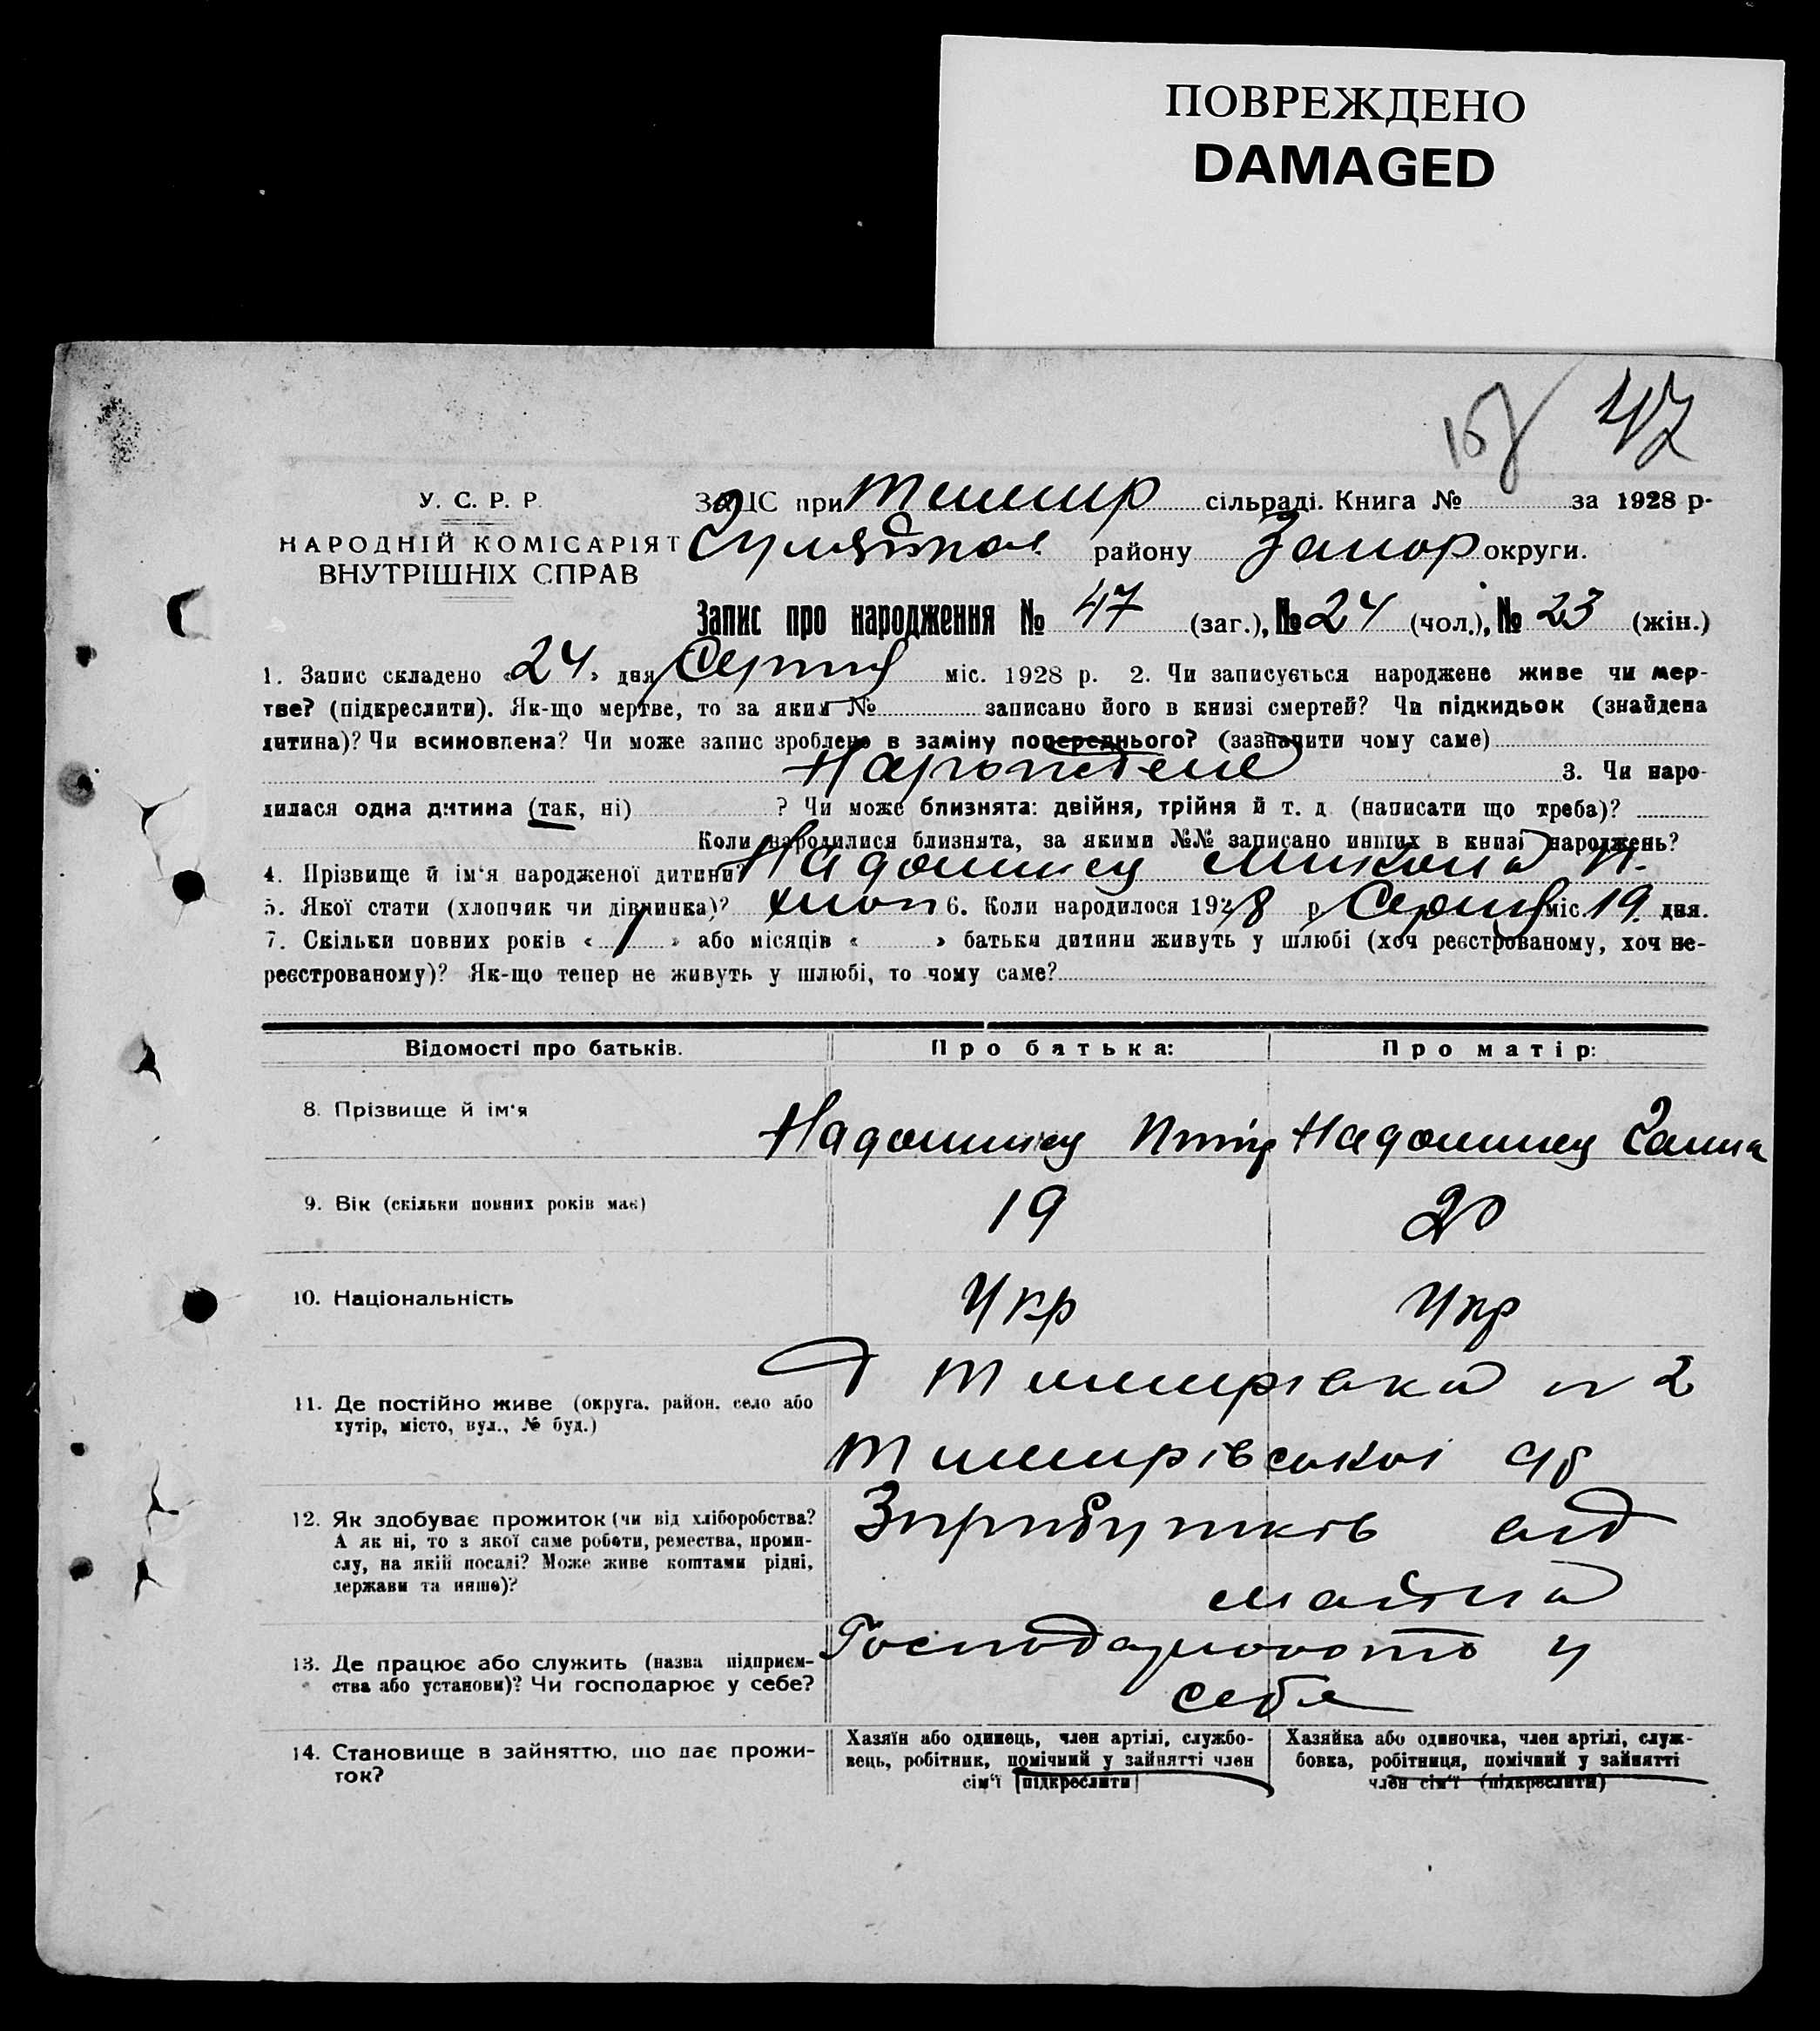 ПОВРЕЖДЕНО
DAMAGED
157 47
У. С. Р. Р.
НАРОДНІЙ КОМІСАРІЯТ
ВНУТРІШНІХ СПРАВ
ЗАЦС при сільраді. Книга № за 1928 р.
району Запор округи.
Запис про народження № 47 (заг.), № 24 (чол.), № 23 (жін.)
1. Запис складено «24» дня Серпня міс. 1928 р. 2. Чи записується народжене живе чи мер-
тве? (підкреслити). Як-що мертве, то за яким № записано його в книзі смертей? Чи підкидьок (знайдена
дитина)? Чи всиновлена? Чи може запис зроблено в заміну попереднього? (зазначити чому саме)
3. Чи наро-
дилася одна дитина (так, ні) ? Чи може близнята: двійня, трійня й т. д. (написати що треба)?
Коли народилися близнята, за якими №№ записано инших в книзі народжень?
4. Прізвище й ім'я народженої дитини? Микола П.
5. Якої стати (хлопчик чи дівчинка)? хлоп 6. Коли народилося 1928 р. Серпня міс. 19 дня.
7. Скільки повних років «1» або місяців « » батьки дитини живуть у шлюбі (хоч реєстрованому, хоч не-
реєстрованому)? Як-що тепер не живуть у шлюбі, то чому саме?
Відомості про батьків. Про батька: Про матір:
8. Прізвище й ім'я
9. Вік (скільки повних років має) 19 20
10. Національність Укр Укр
11. Де постійно живе (округа, район, село або
хутір, місто, вул., № буд.)
12. Як здобуває прожиток (чи від хліборобства?
А як ні, то з якої саме роботи, ремества, проми-
слу, на якій посаді? Може живе коштами рідні,
держави та инше)?
13. Де працює або служить (назва підприєм-
ства або установи)? Чи господарює у себе?
у
себе
14. Становище в зайняттю, що дає прожи-
ток?
Хазяїн або одинець, член артілі, службо-
вець, робітник, помічний у зайнятті член
сім'ї (підкреслити)
Хазяйка або одиночка, член артілі, служ-
бовка, робітниця, помічний у зайнятті
член сім'ї (підкреслити)